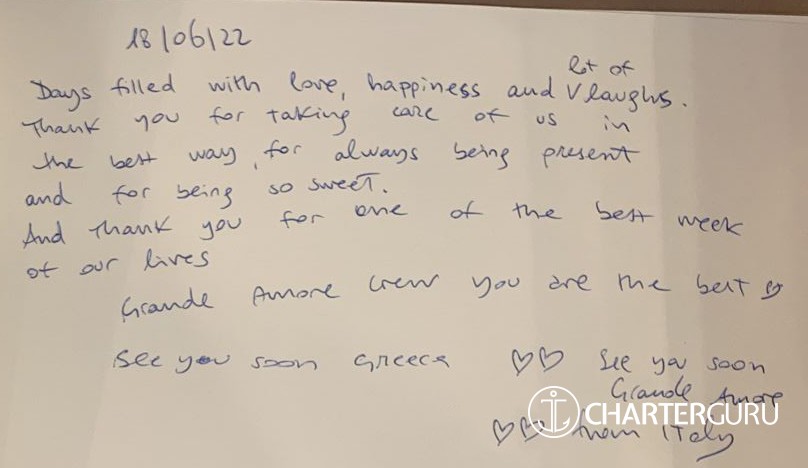 18/06/22
lot of
Days filled with love, happiness and V laughs.
Thank you for taking care of us in
the best way, for always being present
and for being so sweet.
And thank you for one of the best week
of our lives
Grande Amore crew you are the best
See you soon Greece ♡♡ See you soon
Grande Amore
♡♡ from Italy
CHARTERGURU